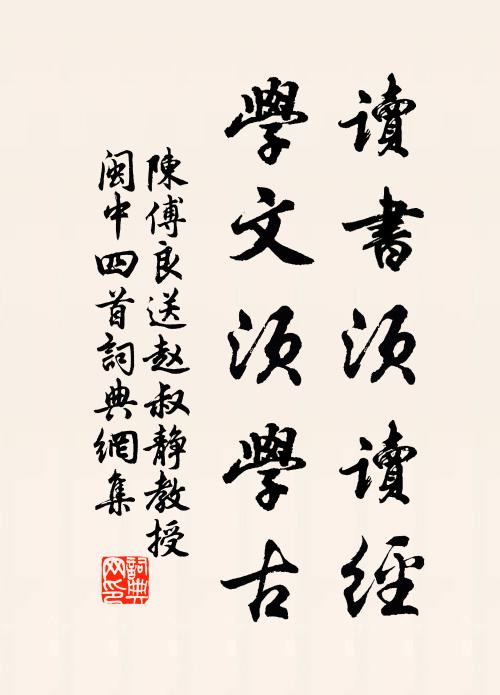 讀書須讀經
學文須學古
陳傅良送赵叔靜教授
閩中四首詞典網集
詞典
网印